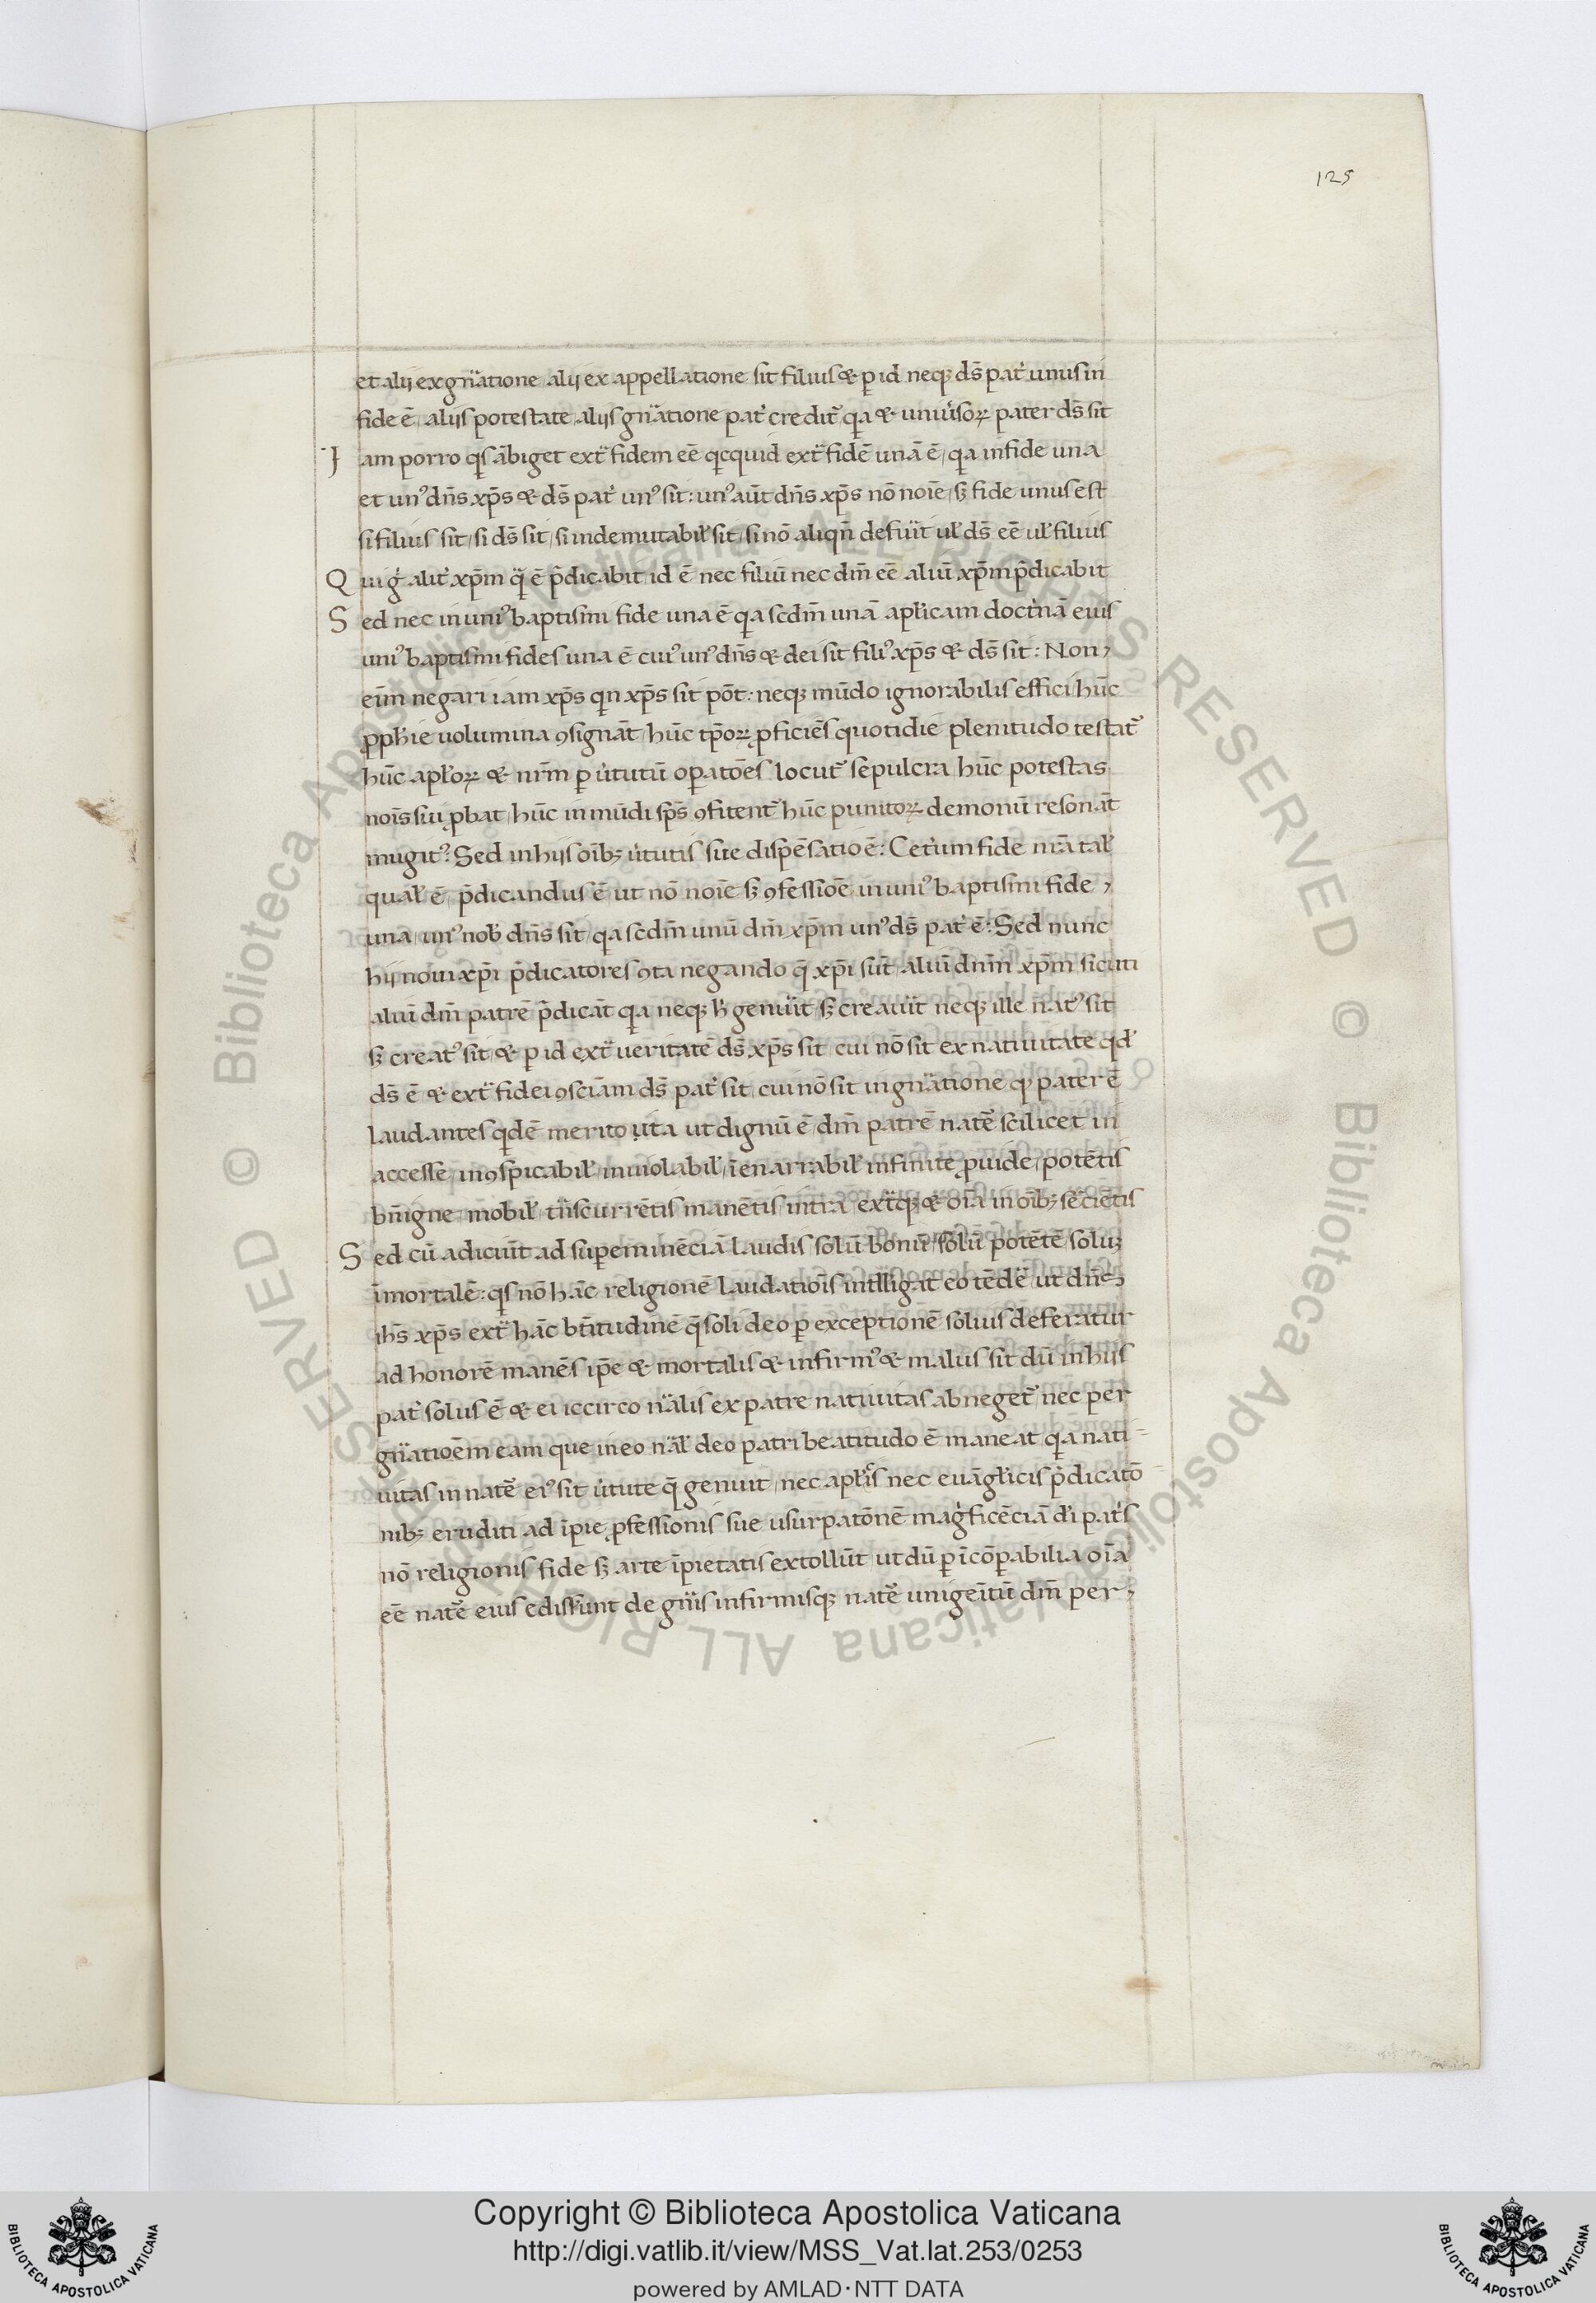 125
et alij ex gn̄atione alij ex appellatione sit filius & ꝑ id neqꝫ ds̄ pat̾ unus in
fide ē, alijs potestate, alijs gn̄atione pat̾ credit᷑ qa & univ̾soꝝ pater ds̄ sit
Jam porro qs ābiget ext̾ fidem eē qcquid ext̾ fidē unā ē, qa in fide una
et unꝰ dn̄s xp̄s & ds̄ pat̾ unꝰ sit: unꝰ aūt dn̄s xp̄s nō noīe, sꝫ fide unus est
si filius sit, si ds̄ sit, si indemutabil̾ sit, si nō aliqn̄ defuit ul̾ ds̄ eē ul̾ filius
Qui g̾ alit̾ xp̄m q̄ ē p̄dicabit, id ē nec filiū nec dm̄ eē aliū xp̄m p̄dicabit
Sed nec in uniꝰ baptismi fide una ē qa scdm̄ unā apl̾icam doct̾nā eius
uniꝰ baptismi fides una ē cuiꝰ unꝰ dn̄s & dei sit filiꝰ xp̄s & ds̄ sit: Non,
eīm negari iam xp̄s qn xp̄s sit pōt: neqꝫ mūdo ignorabilis effici hūc
ꝓph̾ie uolumina ꝯsignāt, hūc tp̄oꝝ ꝓficiēs quotidie plenitudo testat᷑
hūc apl̾oꝝ & mr̄m ꝑ v̾tutū oꝑatōes locut᷑ sepulcra, hūc potestas
noīs sui ꝓbat, hūc in mūdi sp̄s ꝯfitent᷑ hūc punitoꝝ demonū resonāt
mugitꝰ. Sed in hijs oībꝫ v̾tutis sue dispēsatio ē: Cet̾um fide nr̄a tal̾
qual̾ ē, p̄dicandus ē ut nō noīe sꝫ ꝯfessioē in uniꝰ baptismi fide,
una, unꝰ nob̾ dn̄s sit, qa scdm̄ unū dm̄ xp̄m unꝰ ds̄ pat̾ ē: Sed nunc
hij noui xp̄i p̄dicatores ꝯta negando q̄ xp̄i sūt, aliū dnm̄ xp̄m sicuti
aliū dm̄ patrē p̄dicāt qa neqꝫ h̾ genuit sꝫ creauit neqꝫ ille natꝰ sit
sꝫ creatꝰ sit, & ꝑ id ext̾ ueritatē ds̄ xp̄s sit, cui nō sit ex natiuitate qd̾
ds̄ ē & ext̾ fidei ꝯsciām ds̄ pat̾ sit, cui nō sit in gn̄atione qꝫ pater ē
laudantes qdē merito uta ut dignū ē, dm̄ patrē natē scilicet in
accesse, inꝯspicabil̾, inuiolabil̾, īenarrabil̾ infinite, ꝓuide, potētis
bn̄igne, mobil̾ tn̄scurrētis manētis intra, ext̾qꝫ & oīa in oībꝫ sēciētis
Sed cū adiciūt ad suꝑeminēciā laudis solū bonū, solū potētē, soluꝫ
īmortalē: qs nō hāc religionē laudatiōis intlligat eo tēde᷑ ut dn̄s,
ih̄s xp̄s ext̾ hāc bt̄itudinē q̄ soli deo ꝑ exceptionē solius deferatur
ad honorē manēs ip̄e & mortalis & infirmꝰ & malus sit dū in hijs
pat̾ solus ē & ei iccirco nālis ex patre natiuitas abneget᷑ nec per
gn̄atioēm eam que in eo nāl̾ deo patri beatitudo ē maneat qa nati-
uitas in natē eiꝰ sit v̾tute q̄ genuit, nec apl̾is nec euāgl̾icis p̄dicatō
nibꝫ eruditi ad īpie ꝓfessionis sue usurpatōnē mag̾ficēciā d̾i pat̾s
nō religionis fide sꝫ arte īpietatis extollūt ut dū ꝑ īcōꝑabilia oīa
eē natē eius edisserunt de gn̄is infirmisqꝫ natē unigeītū dm̄ per,
Copyright © Biblioteca Apostolica Vaticana
http://digi.vatlib.it/view/MSS_Vat.lat.253/0253
powered by AMLAD·NTT DATA
BIBLIOTECA APOSTOLICA VATICANA
BIBLIOTECA APOSTOLICA VATICANA
© Biblioteca Apostolica Vaticana ALL RIGHTS RESERVED © Biblioteca Apostolica Vaticana ALL RIGHTS RESERVED